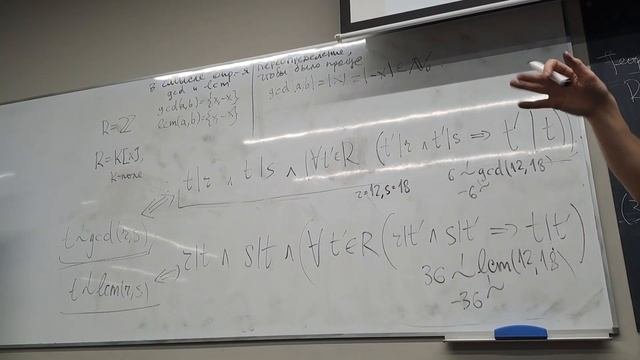 в смысле опр-я
gcd и lcm
gcd(a,b)={x,-x}
lcm(a,b)={x,-x}
переопределение,
чтобы было проще
gcd(a,b)=|x|=|-x|∈ℕ₀
R=ℤ
R=K[x],
K=поле
t|r ∧ t|s ∧ (∀t'∈R (t'|r ∧ t'|s ⇒ t'|t))
r=12, s=18
6 ~ gcd(12,18)
-6 ~
t~gcd(r,s)
t~lcm(r,s)
r|t ∧ s|t ∧ (∀t'∈R (r|t' ∧ s|t' ⇒ t|t')
36 ~ lcm(12,18)
-36 ~